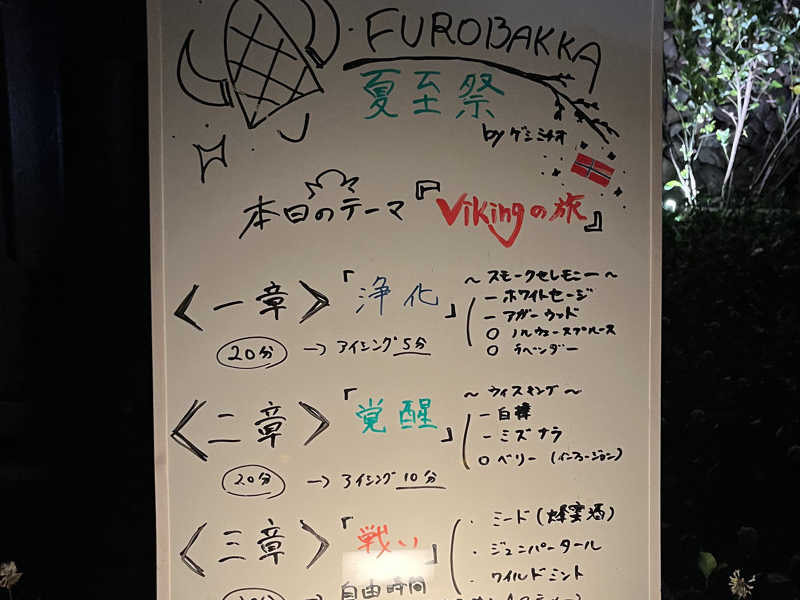 FUROBAKKA
夏至祭
by ゲシミチオ
本日のテーマ『Vikingの旅』
〈一章〉「浄化」
20分 → アイシング 5分
〜スモークセレモニー〜
ーホワイトセージ
ーアガーウッド
○ ノルウェースプルース
○ ラベンダー
〈二章〉「覚醒」
20分 → アイシング 10分
〜ウィスキング〜
ー白樺
ーミズナラ
○ ベリー (インフュージョン)
〈三章〉「戦い」
自由時間
・ミード(蜂蜜酒)
・ジュニパータール
・ワイルドミント